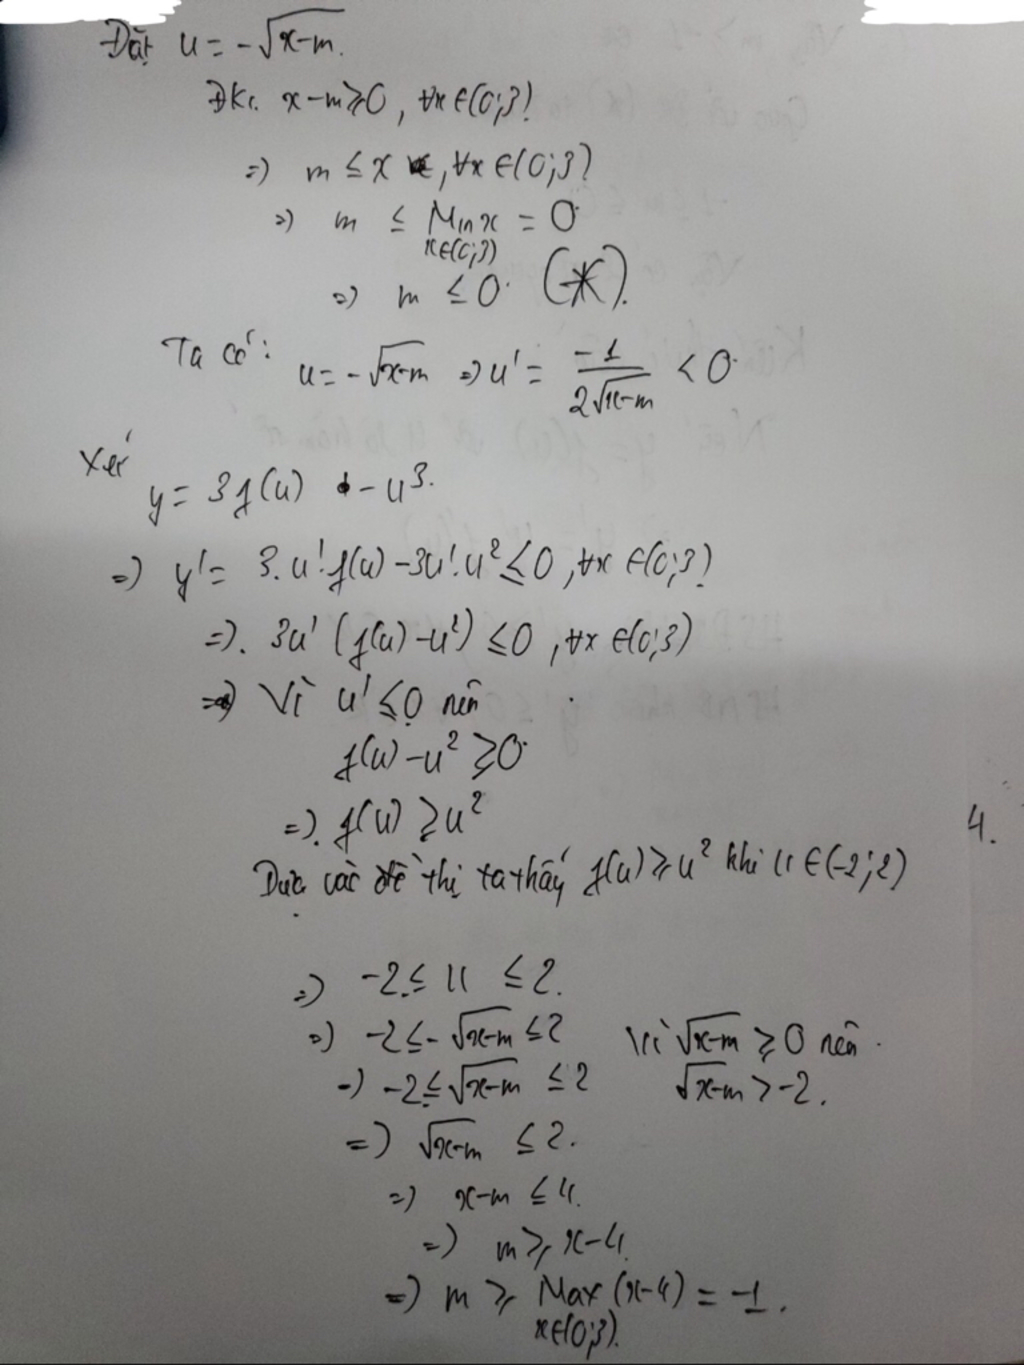 Đặt u = -√(x-m).
ĐK: x-m ≥ 0, ∀x ∈ (0;3)
=) m ≤ x, ∀x ∈ (0;3)
=) m ≤ Min x = 0
x∈(0;3)
=) m ≤ 0. (*).
Ta có: u = -√(x-m) =) u' = -1/(2√(x-m)) < 0.
Xét
y = 3f(u) - u³.
=) y' = 3.u'.f(u) - 3u'.u² ≤ 0, ∀x ∈ (0;3)
=). 3u' (f(u) - u²) ≤ 0, ∀x ∈ (0;3)
=) Vì u' ≤ 0 nên
f(u) - u² ≥ 0.
=). f(u) ≥ u²
4.
Dựa vào đồ thị ta thấy f(u) ≥ u² khi u ∈ (-2;2)
=) -2 ≤ u ≤ 2.
=) -2 ≤ -√(x-m) ≤ 2 Vì √(x-m) ≥ 0 nên
-) -2 ≤ √(x-m) ≤ 2 √(x-m) > -2.
=) √(x-m) ≤ 2.
=) x-m ≤ 4.
=) m ≥ x-4
=) m ≥ Max (x-4) = -1.
x∈(0;3).